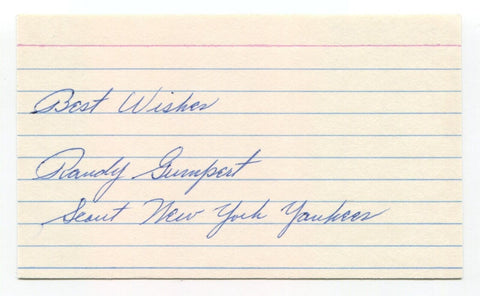 Best Wishes
Randy Gumpert
Scout New York Yankees